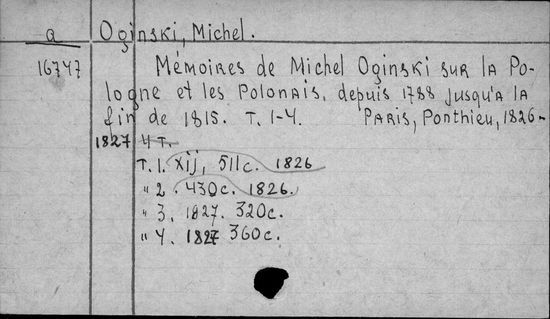 a Oginski, Michel.
16747 Mémoires de Michel Oginski sur la Po-
logne et les Polonais, depuis 1788 jusqu'a la
fin de 1815. T. 1-4. Paris, Ponthieu, 1826-
1827 4 T.
T. 1. XIj, 511c. 1826
" 2. 430c. 1826.
" 3. 1827. 320c.
" 4. 1827 360c.